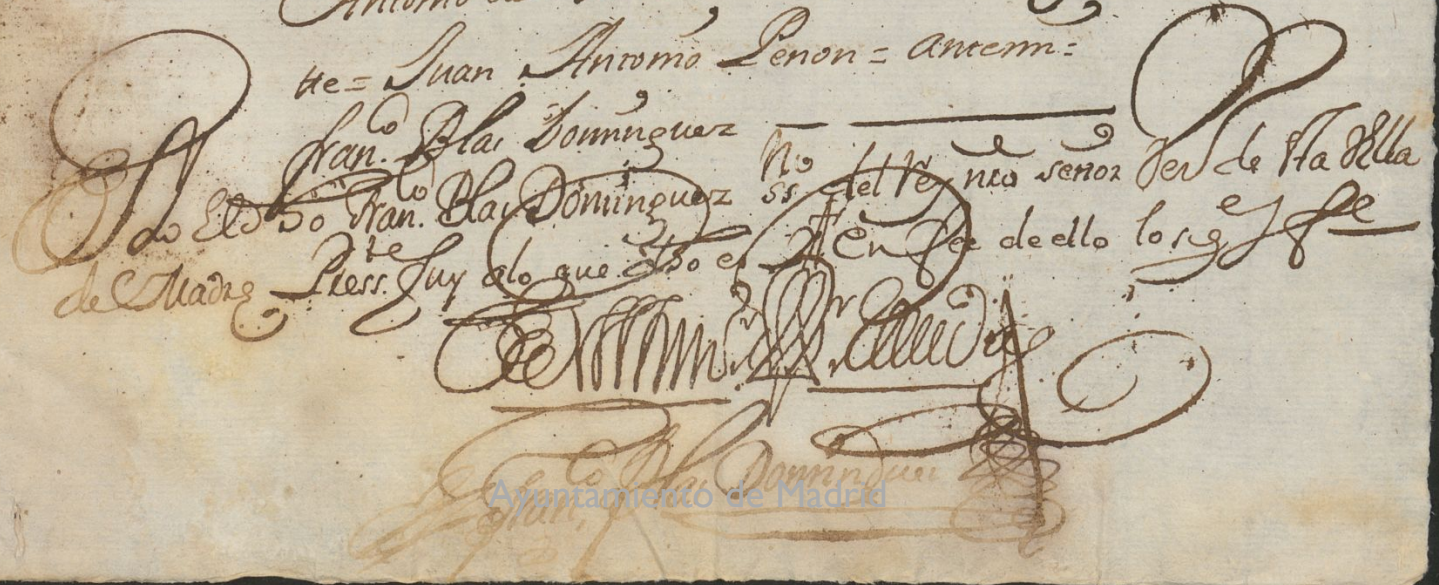 Antonio
tte = Juan Antonio Penon = antemi =
Fran.co Blas Dominguez
Yo El dho Fran.co Blas Dominguez ss.no del Rey nro señor Vezº de sta Villa
de Madrd Press.te fuy a lo que dho es y en fee de ello lo signe y firme
En testimº de Verdad
Fran.co Blas Dominguez
Ayuntamiento de Madrid